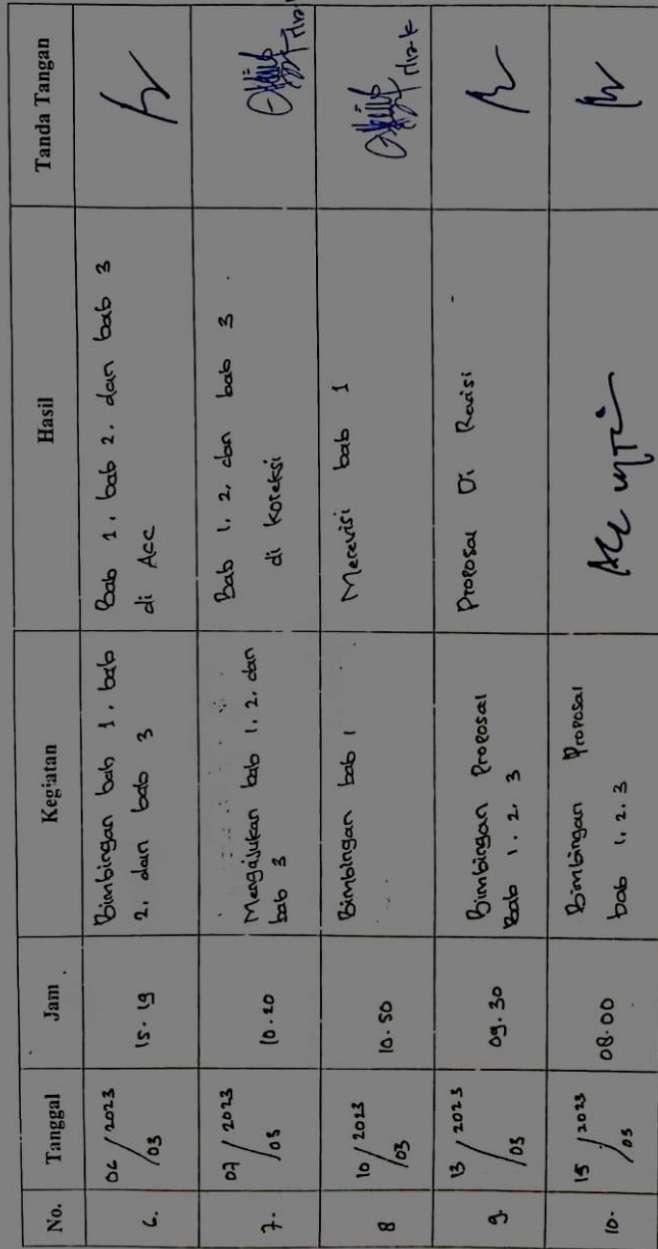 No. Tanggal Jam Kegiatan Hasil Tanda Tangan
6. 06/03 2023 15.19 Bimbingan bab 1, bab Bab 1, bab 2, dan bab 3
2, dan bab 3 di Acc
7. 07/03 2023 10.20 Mengajukan bab 1, 2, dan Bab 1, 2, dan bab 3
bab 3 di koreksi
8 10/03 2023 10.50 Bimbingan bab 1 Merevisi bab 1
9. 13/03 2023 09.30 Bimbingan Proposal Proposal Di Revisi
Bab 1. 2. 3
10. 15/03 2023 08.00 Bimbingan Proposal Acc
bab 1. 2. 3